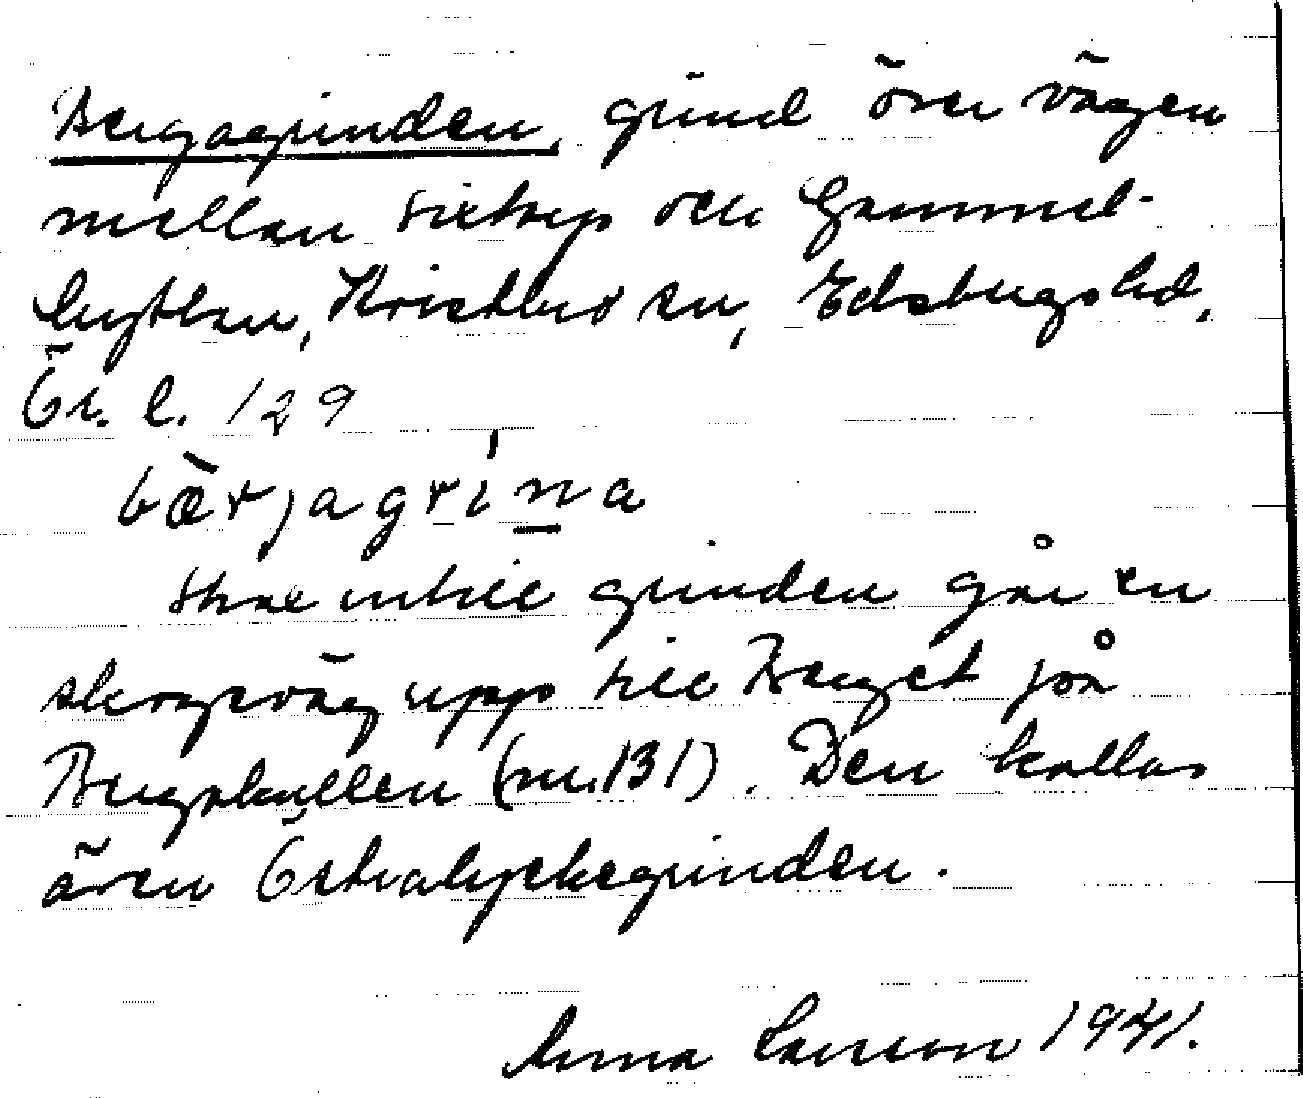 Bergagrinden, grind över vägen
mellan Sixtorp och Gammel-
hyttan, Kristbroen, Edsbergs hd,
Ör. l. 129
bæ̀rjagrína
Strax intill grinden går en
skogsväg upp till Berget på
Bergskullen (nr. 131). Den kallas
även Östralyckegrinden.
Anna Larsson 1941.